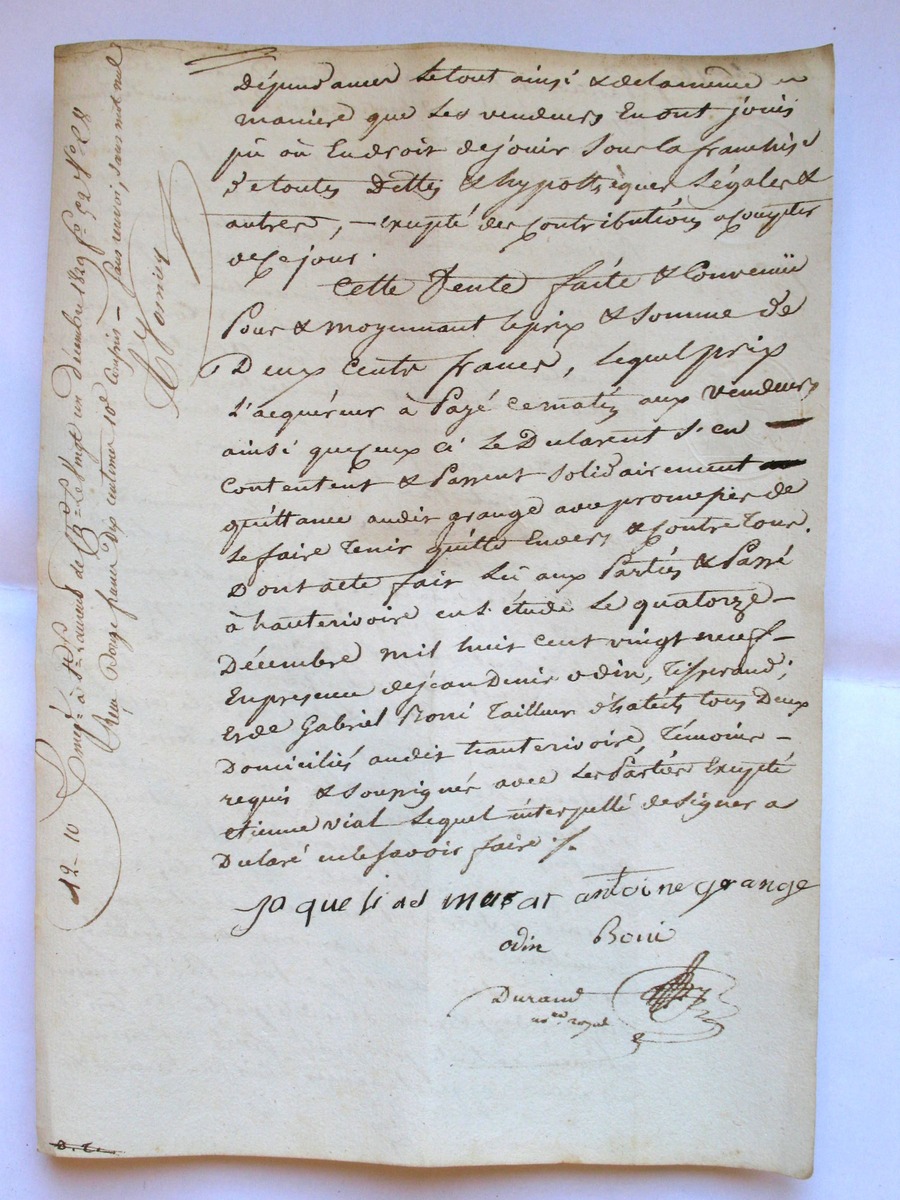 Dépendances Letout ainsi & delamême
maniere que Les vendeurs En ont jouis
pû où Eu droit dejouir Sous la franchise
de toutes Dettes & hypothèques Légales &
autres, – Excepté des Contributions acompter
dece jour.
Cette Vente faite & Convenuë
Pour & moyennant leprix & Somme de
Deux Cents francs, Lequel prix
L'acquéreur à Payé cematin aux vendeurs
ainsi queceux ci Le Déclarent S'en
Contentent & Passent Solidairement
quittance audit grange avec promesse de
Le faire Tenir quitte Envers & Contre Tous.
Dont acte fait Lû aux Parties & Passé
à hauterivoire en L'étude Le quatorze
Décembre mil huit cent vingt neuf
En présence de jean Denis odin, Tisserand;
Et de Gabriel Boni Tailleur d'habits tous Deux
Domiciliés audit hauterivoire, Témoins
requis & Soussignés avec Les Parties Excepté
etienne vial Lequel interpellé de Signer a
Déclaré ne le Savoir faire ./.
antoine grange
odin Boni
Durand
no.re royal
à St Laurent de Ch. Le vingt un décembre 1829 f° 52 V° C. 8
Reçu Douze francs Dix centimes 10e Compris – Sans renvoi, Sans mot nul
12 – 10